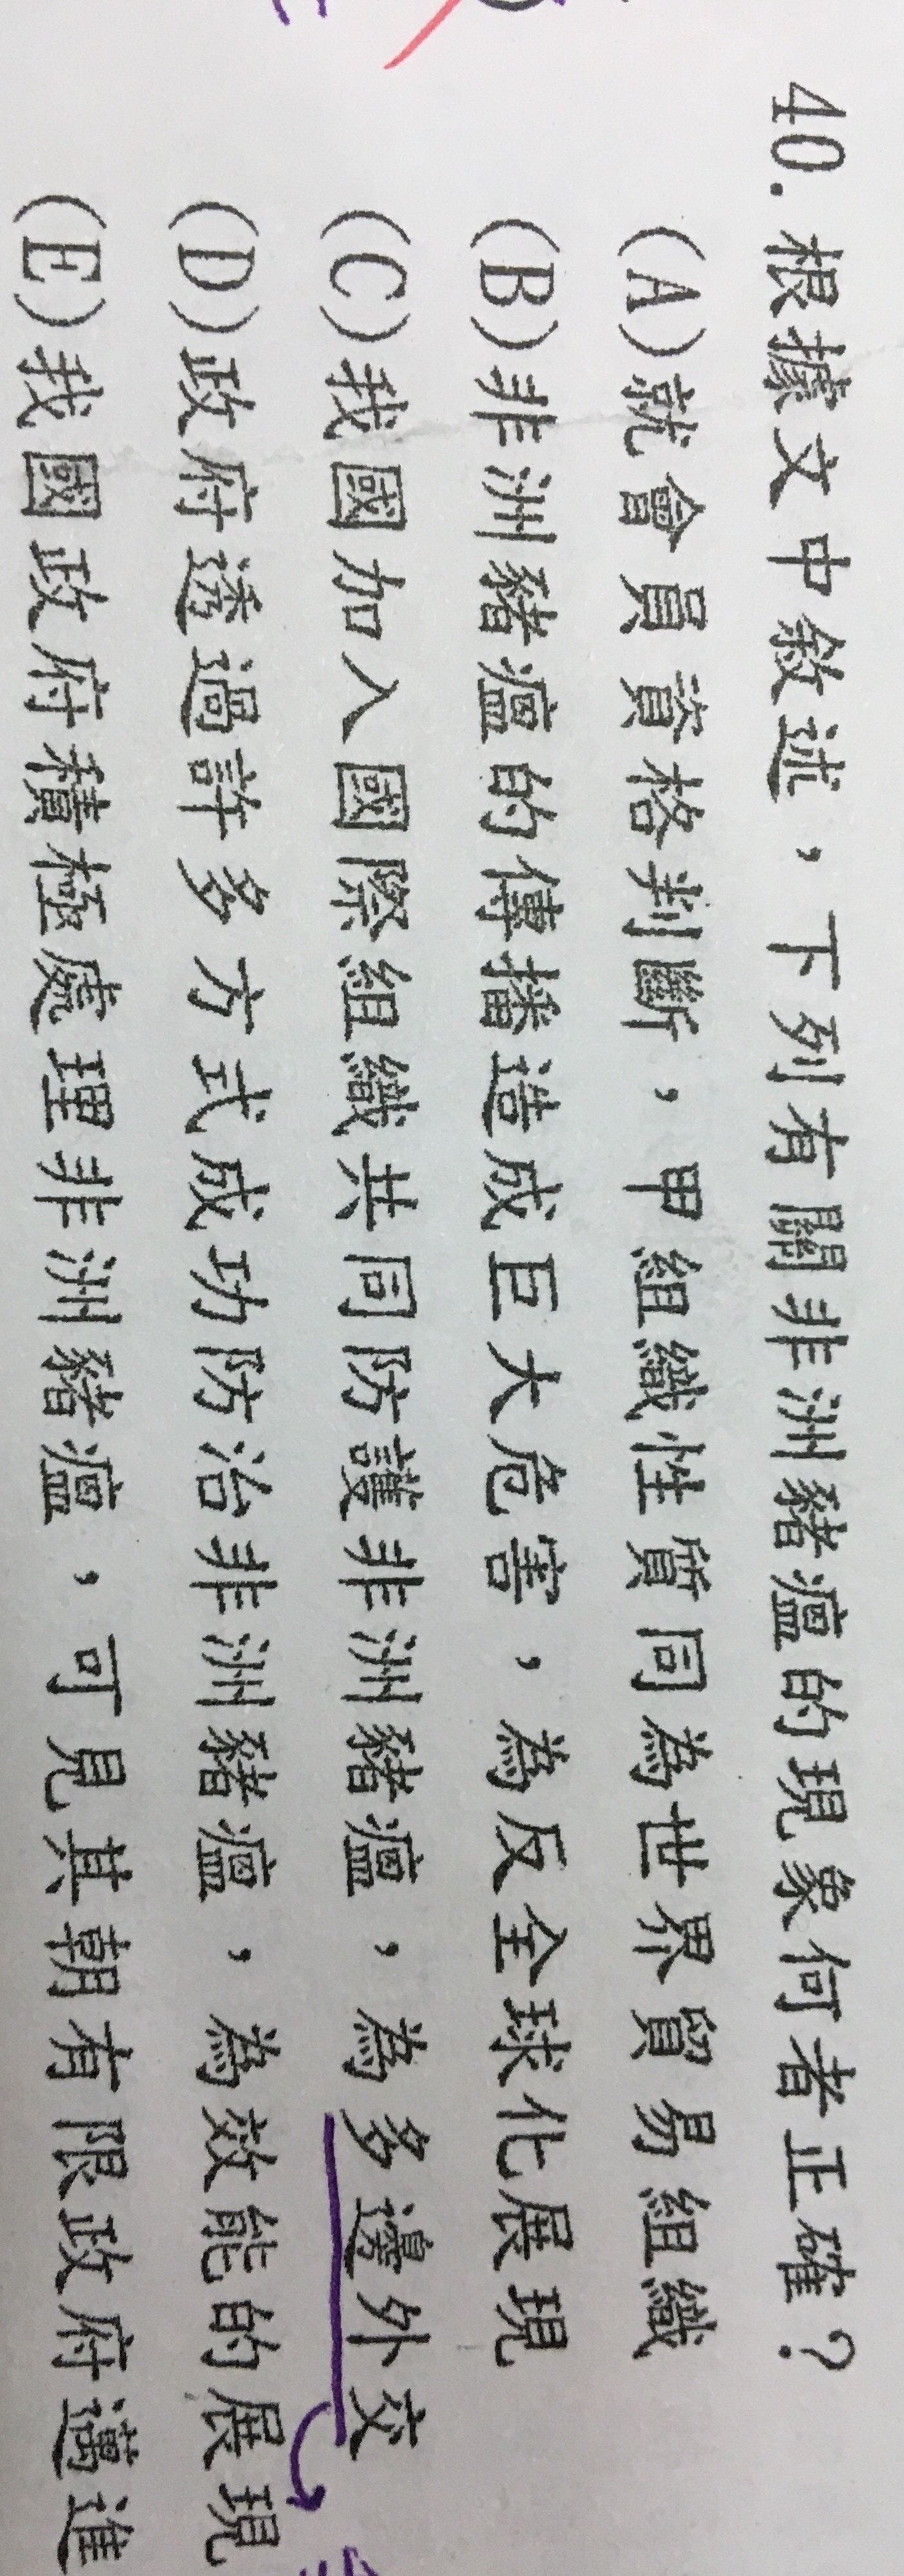 40.根據文中敘述，下列有關非洲豬瘟的現象何者正確？
(A)就會員資格判斷，甲組織性質同為世界貿易組織
(B)非洲豬瘟的傳播造成巨大危害，為反全球化展現
(C)我國加入國際組織共同防護非洲豬瘟，為多邊外交
(D)政府透過許多方式成功防治非洲豬瘟，為效能的展現
(E)我國政府積極處理非洲豬瘟，可見其朝有限政府邁進